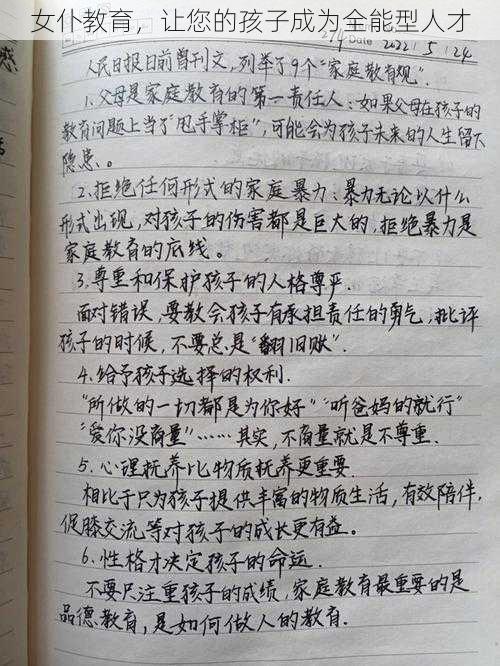 女仆教育，让您的孩子成为全能型人才
274 Date 2022/5/24
人民日报日前曾刊文,列举了9个"家庭教育观".
1.父母是家庭教育的第一责任人:如果父母在孩子的
教育问题上当了"甩手掌柜",可能会为孩子未来的人生留下
隐患。
2.拒绝任何形式的家庭暴力:暴力无论以什么
形式出现,对孩子的伤害都是巨大的,拒绝暴力是
家庭教育的底线。
3.尊重和保护孩子的人格尊严.
面对错误,要教会孩子有承担责任的勇气,批评
孩子的时候,不要总是"翻旧账".
4.给予孩子选择的权利.
"所做的一切都是为你好""听爸妈的就行"
"爱你没商量"……其实,不商量就是不尊重.
5.心理抚养比物质抚养更重要.
相比于只为孩子提供丰富的物质生活,有效陪伴,
促膝交流等对孩子的成长更有益。
6.性格才决定孩子的命运.
不要只注重孩子的成绩,家庭教育最重要的是
品德教育,是如何做人的教育.